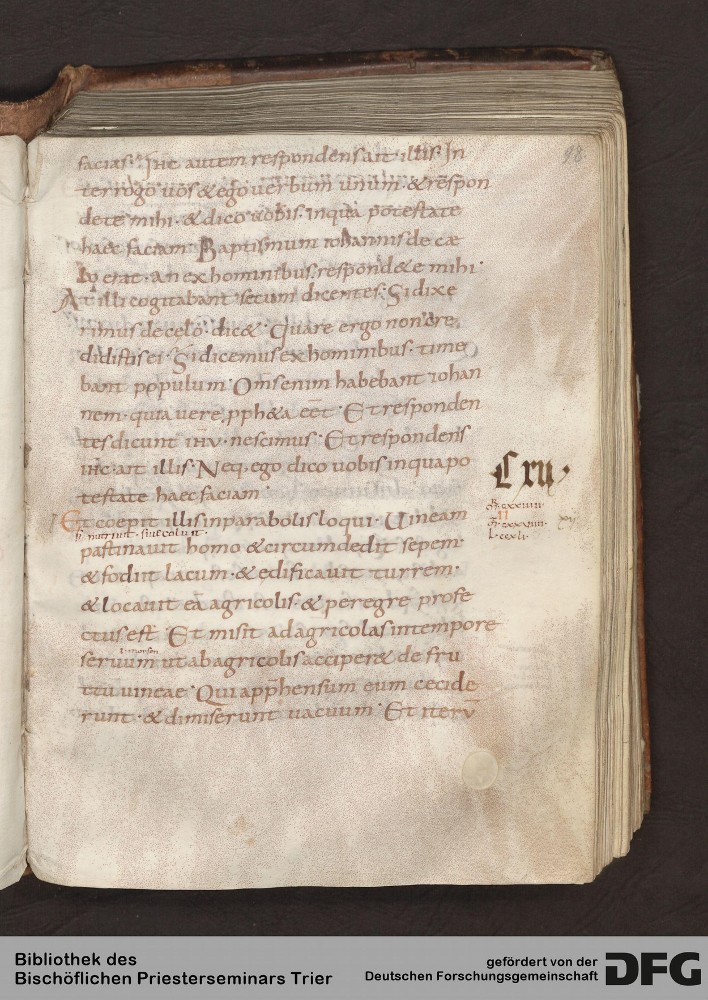 facias. Ihc autem respondens ait illis. In
98
terrogo uos & ego uerbum unum. & respon
dete mihi. & dico uobis. in qua potestate
haec faciam. Baptismum iohannis de cae
lo erat. an ex hominibus. respond&e mihi.
At illi cogitabant secum dicentes. Si dixe
rimus de celo. dic&. Quare ergo non cre
didistis ei. Si dicemus ex hominibus. time
bant populum. Om̄s enim habebant iohan
nem. quia uere pph&a eēt. Et responden
tes dicunt ihu. nescimus. Et respondens
ihc ait illis. Neq. ego dico uobis in qua po
testate haec faciam.
C xu.
Et coepit illis in parabolis loqui. Uineam
pastinauit homo & circumdedit sepem.
& fodiit lacum. & edificauit turrem.
& locauit eā agricolis. & peregre profe
ctus est. Et misit ad agricolas in tempore
seruum ut ab agricolis acciper& de fru
ctu uineae. Qui app̄hensum eum cecide
runt. & dimiserunt uacuum. Et iterū
Bibliothek des
Bischöflichen Priesterseminars Trier
gefördert von der
Deutschen Forschungsgemeinschaft
DFG